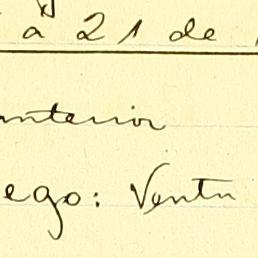 a 21 de
anterior
ego: Ventu